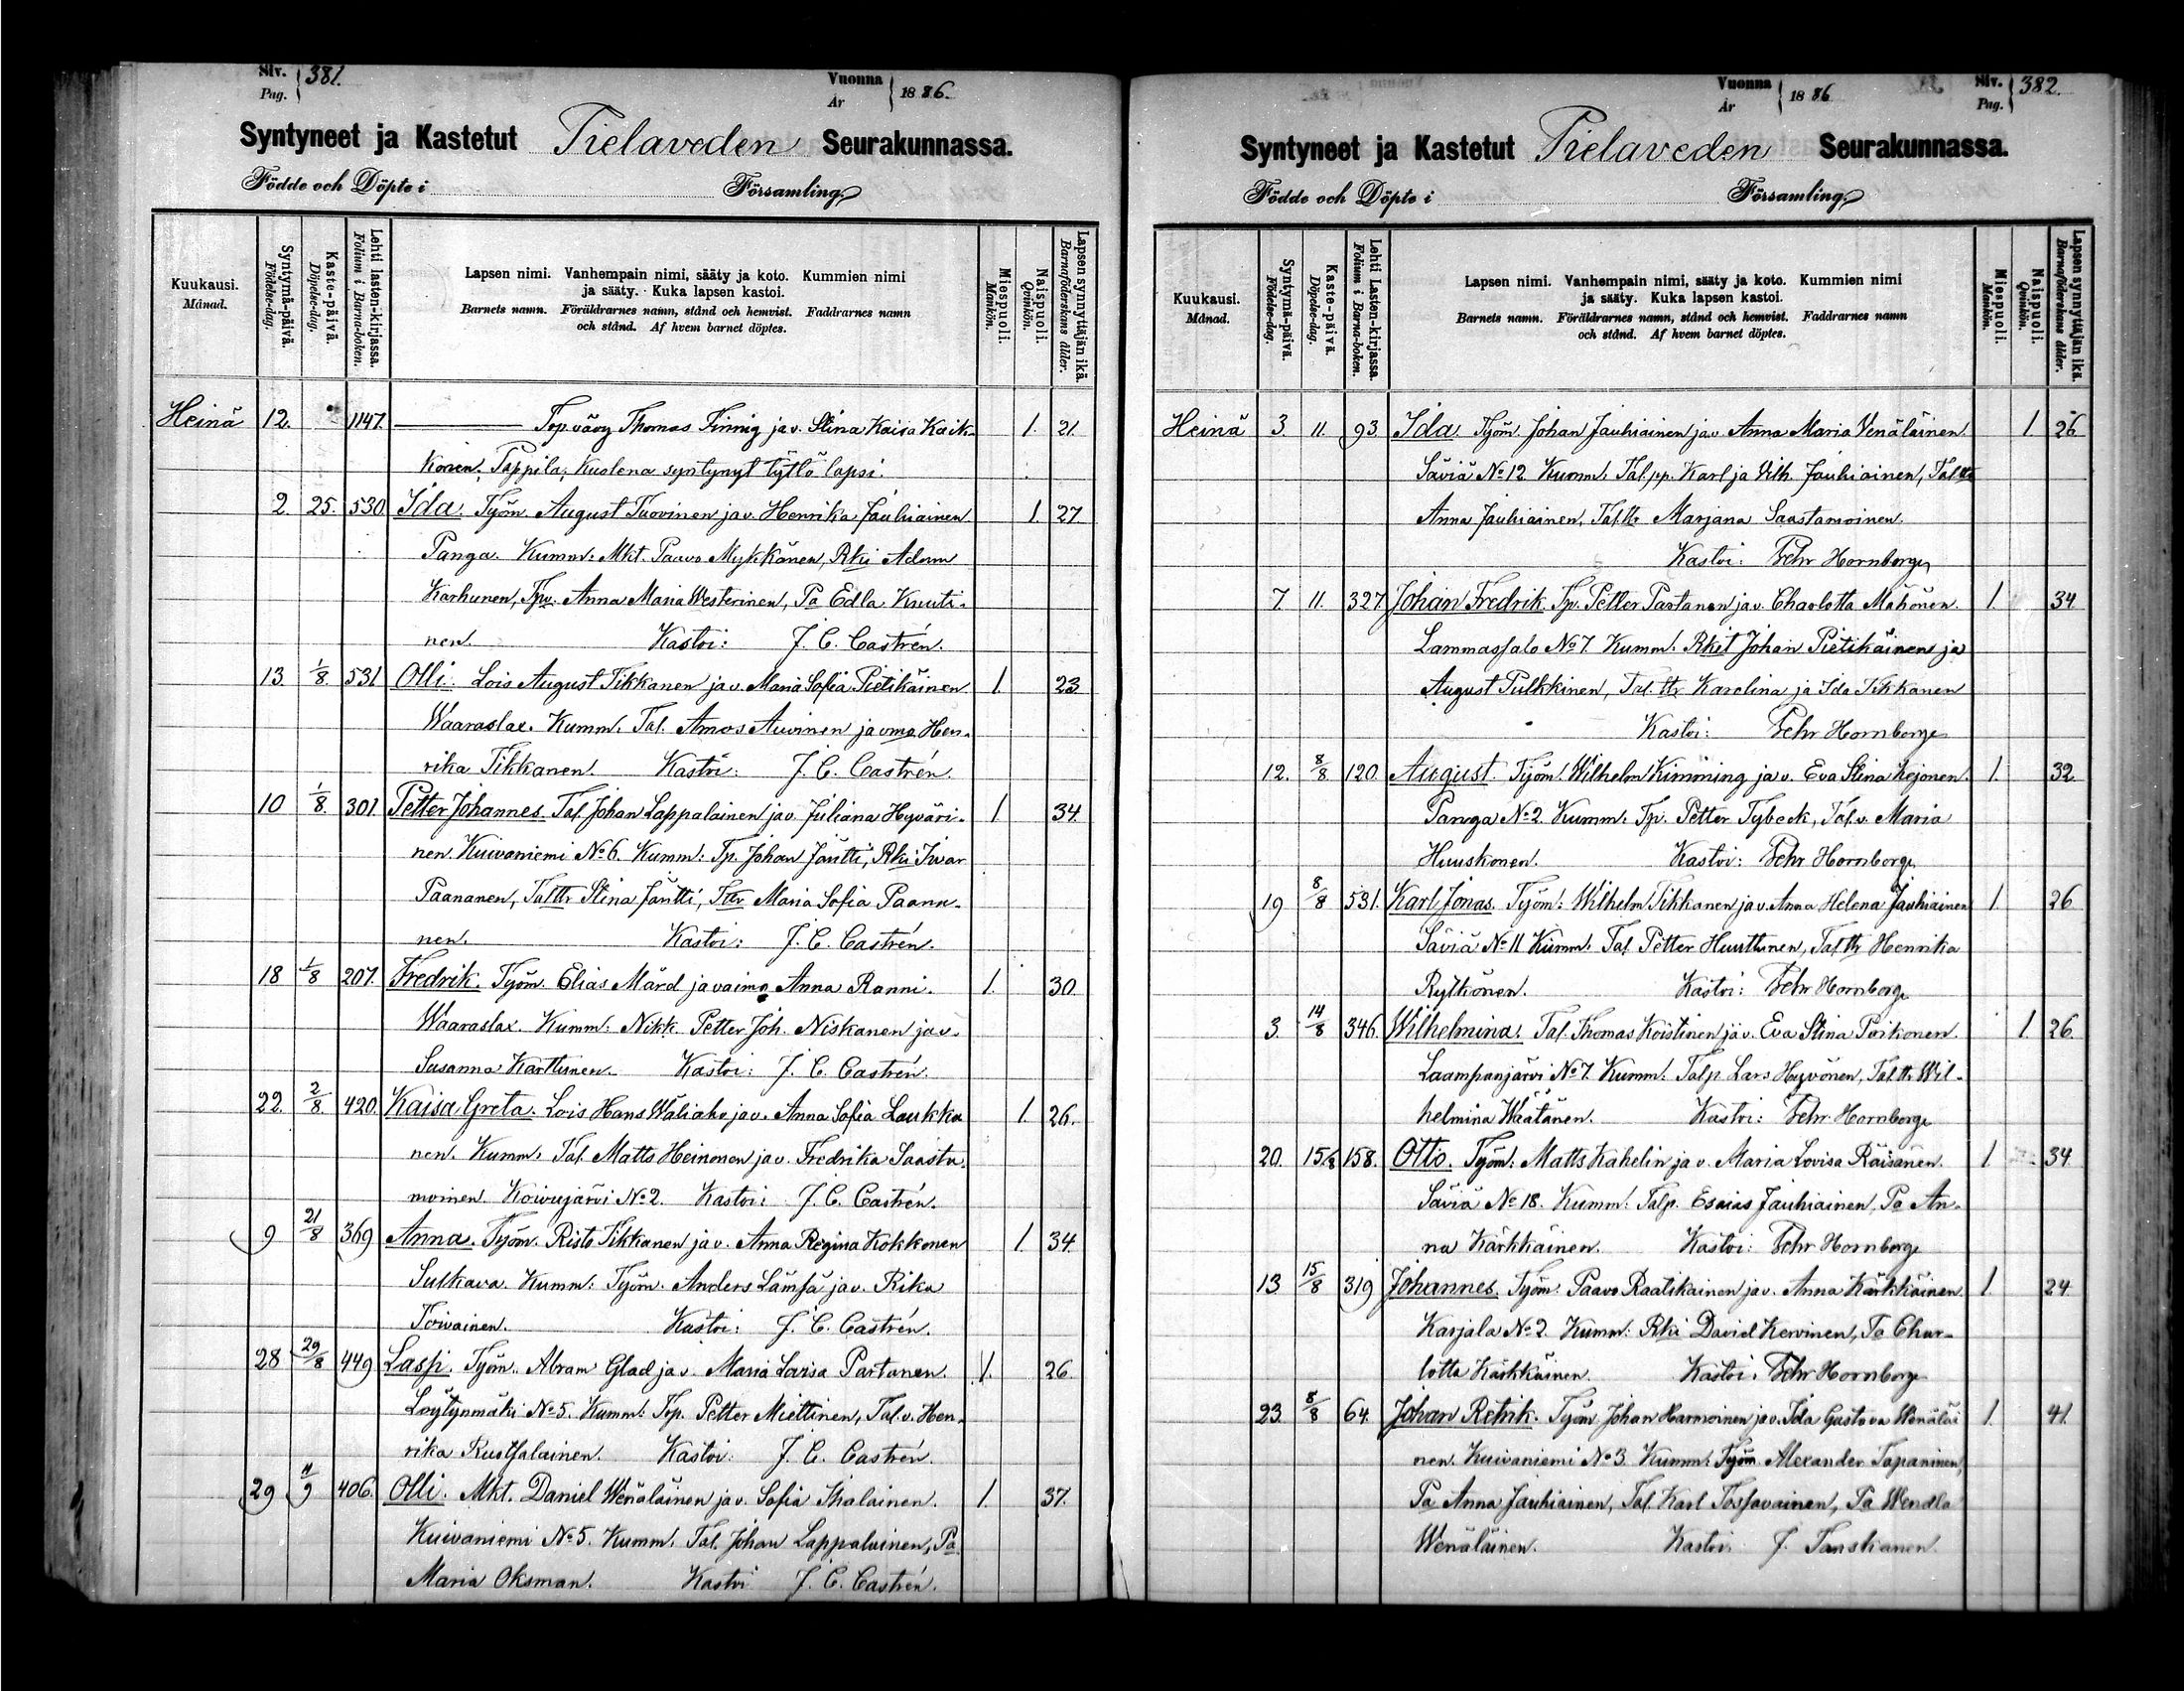 Siv. Pag. 381. Vuonna År 1886.
Syntyneet ja Kastetut Pielaveden Seurakunnassa.
Födde och Döpte i Församling.
Kuukausi. Månad. Syntymä-päivä. Födelse-dag. Kaste-päivä. Döpelse-dag. Lehti lasten-kirjassa. Folium i Barna-boken. Lapsen nimi. Vanhempain nimi, sääty ja koto. Kummien nimi ja sääty. Kuka lapsen kastoi. Barnets namn. Föräldrarnes namn, stånd och hemvist. Faddrarnes namn och stånd. Af hvem barnet döptes. Miespuoli. Mankön. Naispuoli. Qvinkön. Lapsen synnyttäjän ikä. Barnaföderskans ålder.
Heinä 12. 1147. Thomas Finnig ja v. Stina Kaisa Kaik- 1. 21.
konen. Pappila, Kuolena syntynyt tyttö lapsi.
2. 25. 530. Ida. Työm. August Tuovinen ja v. Henrika Jauhiainen 1. 27.
Panga. Kumm: Mkt. Paavo Mykkänen, Rki Adam
Karhunen, Tpv. Anna Maria Westerinen, Pa Edla Knuuti-
nen. Kastoi: J. C. Castrén.
13. 1/8. 531. Olli. Lois August Tikkanen ja v. Maria Sofia Pietikäinen 1. 23.
Waaraslax. Kumm. Tal. Amos Auvinen ja vmo Hen-
rika Tikkanen. Kastoi: J. C. Castrén.
10 1/8. 301. Petter Johannes. Tal. Johan Lappalainen ja v. Juliana Hyväri- 1 34.
nen Kuivaniemi No 6. Kumm: Tp. Johan Jäntti, Rki Iwar
Paananen, Tal.ttr Stina Jäntti, Maria Sofia Paana-
nen. Kastoi: J. C. Castrén.
18 1/8 207. Fredrik. Työm. Elias Mård ja vaimo Anna Ranni. 1. 30
Waaraslax. Kumm: Nikk. Petter Joh. Niskanen ja v.
Susanna Karttunen. Kastoi: J. C. Castrén.
22. 2/8. 420. Kaisa Greta. Lois Hans Wäliaho ja v. Anna Sofia Laukka 1. 26.
nen. Kumm. Tal. Matts Heinonen ja v. Fredrika Saasta-
moinen. Koivujärvi No 2. Kastoi: J. C. Castrén.
9 21/8 369 Anna. Työm. Risto Tikkanen ja v. Anna Regina Kokkonen 1. 34.
Sulkava. Kumm: Työm. Anders Lämsä ja v. Rika
Toivainen. Kastoi: J. C. Castrén.
28 29/8 449 Lassi. Työm. Abram Glad ja v. Maria Lovisa Partanen. 1. 26
Löytynmäki No 5. Kumm: Tp. Petter Miettinen, Tal.v. Hen-
rika Rustfalainen. Kastoi: J. C. Castrén.
29 4/9 406. Olli. Mkt. Daniel Wenäläinen ja v. Sofia Ihalainen. 1. 37.
Kuivaniemi No 5. Kumm. Tal. Johan Lappalainen, Pa
Maria Oksman. Kastoi J. C. Castrén.
Vuonna År 1886 Siv. Pag. 382.
Syntyneet ja Kastetut Pielaveden Seurakunnassa.
Födde och Döpte i Församling.
Kuukausi. Månad. Syntymä-päivä. Födelse-dag. Kaste-päivä. Döpelse-dag. Lehti Lasten-kirjassa. Folium i Barna-boken. Lapsen nimi. Vanhempain nimi, sääty ja koto. Kummien nimi ja sääty. Kuka lapsen kastoi. Barnets namn. Föräldrarnes namn, stånd och hemvist. Faddrarnes namn och stånd. Af hvem barnet döptes. Miespuoli. Mankön. Naispuoli. Qvinkön. Lapsen synnyttäjän ikä. Barnaföderskans ålder.
Heinä 3. 11. 93 Ida. Työm. Johan Jauhiainen ja v. Anna Maria Venäläinen. 1. 26
Säviä No 12. Kumm. Tal.pp. Karl ja Vilh. Jauhiainen, Tal.ttr
Anna Jauhiainen, Tal.ttr Marjana Saastamoinen.
Kastoi: Fehr Hornborg
7. 11. 327. Johan Fredrik. Tp. Petter Partanen ja v. Charlotta Mähönen. 1. 34
Lammassalo No 7. Kumm. Rkit Johan Pietikäinen ja
August Pulkkinen, Tal. ttr Karolina ja Ida Tikkanen
Kastoi: Fehr Hornborg
12. 8/8 120. August. Työm. Wilhelm Kimming ja v. Eva Stina Kejonen. 1. 32.
Panga No 2. Kumm: Tp. Petter Tybeck, Tal.v. Maria
Huuskonen. Kastoi: Fehr Hornborg
19 8/8 531. Karl Jonas. Työm: Wilhelm Tikkanen ja v. Anna Helena Jauhiainen 1. 26
Säviä No 11 Kumm. Tal. Petter Huuttunen, Tal.ttr Henrika
Rytkönen. Kastoi: Fehr Hornborg
3. 14/8 346. Wilhelmina. Tal. Thomas Koistinen ja v. Eva Stina Poikonen. 1. 26.
Laampanjärvi No 7. Kumm. Talp. Lars Hyvönen, Tal.ttr Wil-
helmina Wäätänen. Kastoi: Fehr Hornborg
20. 15/8 158. Otto. Työm: Matts Kahelin ja v. Maria Lovisa Räisänen. 1. 34
Säviä No 18. Kumm: Talp. Esaias Jauhiainen, Pa An-
na Kärkkäinen. Kastoi: Fehr Hornborg
13 15/8 319 Johannes. Työm. Paavo Raatikainen ja v. Anna Kärkkäinen. 1. 24
Karjala No 2. Kumm: Rki David Kervinen, Pa Char-
lotta Kärkkäinen. Kastoi: Fehr Hornborg
23. 8/8 64. Johan Retrik. Työm. Johan Harmoinen ja v. Ida Gustava Wenäläi 1. 41.
nen. Kuivaniemi No 3. Kumm: Työm. Alexander Tapaninen,
Pa Anna Jauhiainen, Tal. Karl Tossavainen, Pa Wendla
Wenäläinen. Kastoi: J. Tanskanen.